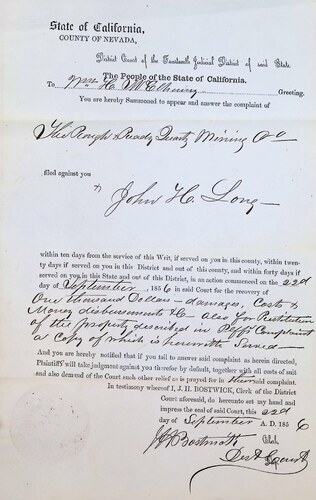 State of California,
COUNTY OF NEVADA,
District Court of the Fourteenth Judicial District of said State.
The People of the State of California.
To Wm H. McElhiney Greeting.
You are hereby Summoned to appear and answer the complaint of
The Rough & Ready Quartz Mining Co
filed against you
& John H. Long
within ten days from the service of this Writ, if served on you in this county, within twen-
ty days if served on you in this District and out of this county, and within forty days if
served on you in this State and out of this District, in an action commenced on the 22d
day of September, 1856 in said Court for the recovery of
One thousand Dollars - damages, Costs &
Money disbursements &c also for Restitution
of the property described in Plffs Complaint
a Copy of which is herewith Served -
And you are hereby notified that if you fail to answer said complaint as herein directed,
Plaintiffs will take judgment against you therefor by default, together with all costs of suit
and also demand of the Court such other relief as is prayed for in their said complaint.
In testimony whereof I, J. H. BOSTWICK, Clerk of the District
Court aforesaid, do hereunto set my hand and
impress the seal of said Court, this 22d
day of September A. D. 1856
J H Bostwick Clerk,
Dist Court